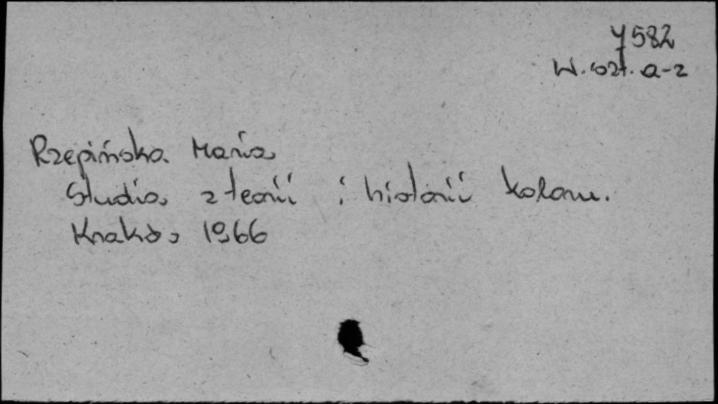 7582
W. szt. a-z
Rzepińska Maria
Studia z teorii i historii koloru.
Kraków 1966